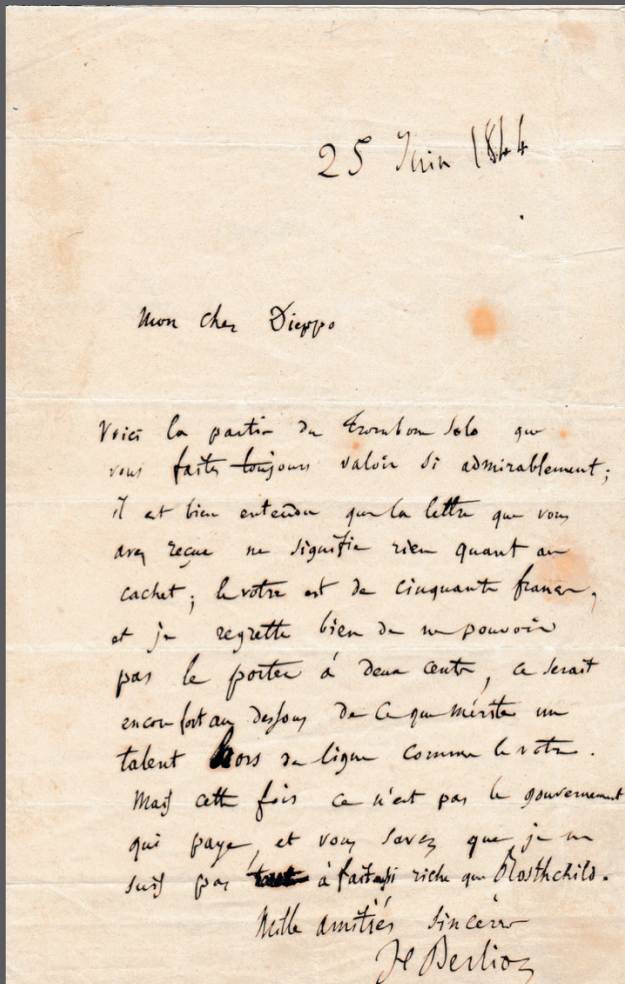 25 Juin 1844
Mon cher Dieppo
Voici la partie de Trombone Solo que
vous faites toujours valoir si admirablement;
il est bien entendu que la lettre que vous
avez reçue ne signifie rien quant au
cachet; le votre est de cinquante francs,
et je regrette bien de ne pouvoir
pas le porter à deux cents, ce serait
encore fort au dessous de ce que mérite un
talent hors de ligne comme le votre.
Mais cette fois ce n'est pas le gouvernement
qui paye, et vous savez que je ne
suis pas tout à fait aussi riche que Rosthchild.
Mille amitiés sincères
H Berlioz